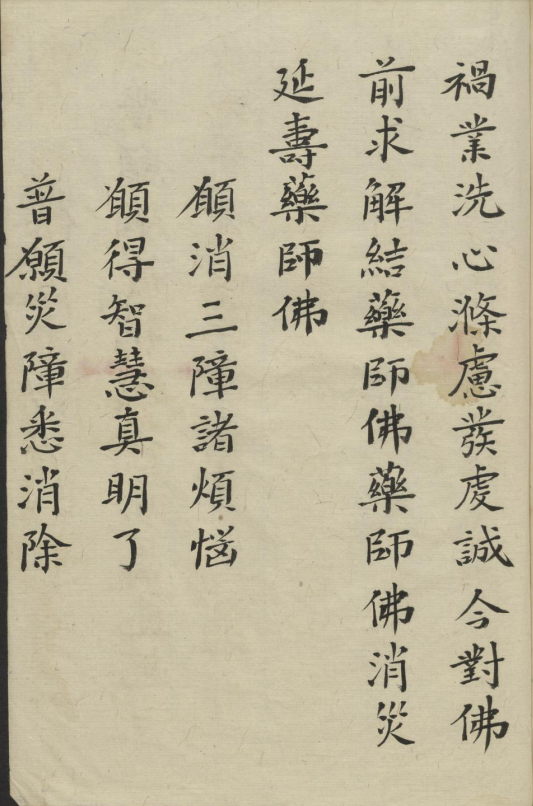 禍業洗心滌慮發虔誠今對佛
前求解結藥師佛藥師佛消災
延壽藥師佛
願消三障諸煩惱
願得智慧真明了
普願災障悉消除